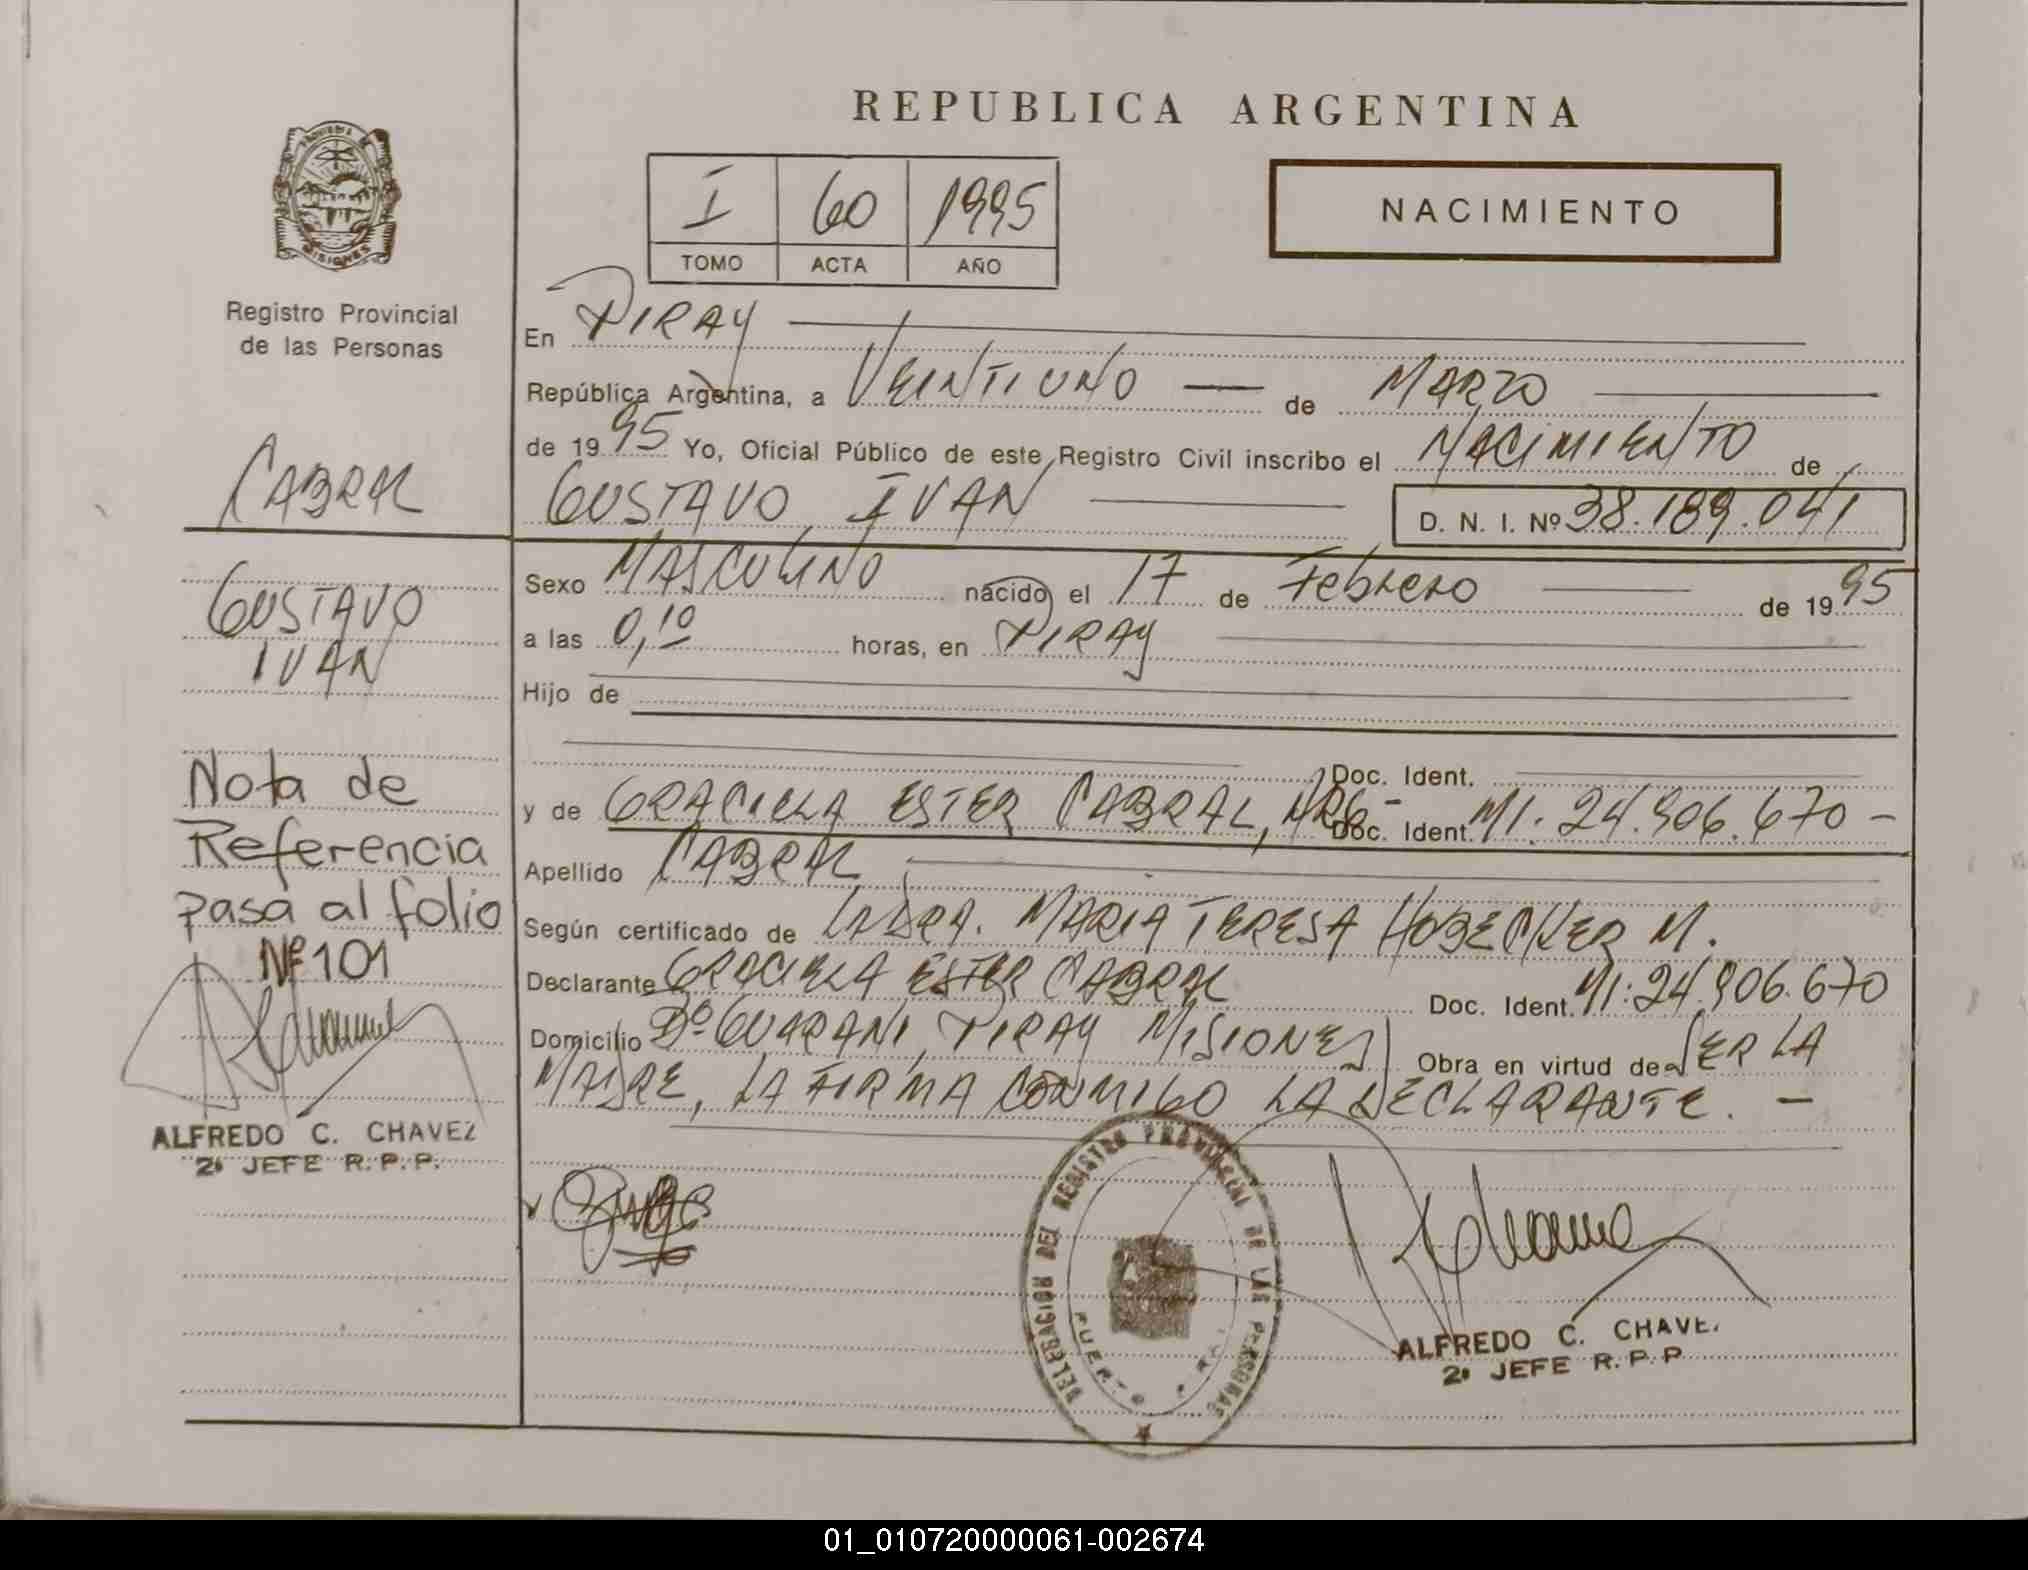 REPUBLICA ARGENTINA
PROVINCIA DE
MISIONES
Registro Provincial
de las Personas
I 60 1995
TOMO ACTA AÑO
NACIMIENTO
En PIRAY
República Argentina, a VEINTIUNO de MARZO
de 1995 Yo, Oficial Público de este Registro Civil inscribo el NACIMIENTO de
GUSTAVO IVAN D. N. I. Nº 38.189.041
Sexo MASCULINO nacido el 17 de Febrero de 1995
a las 0,10 horas, en PIRAY
Hijo de
Doc. Ident.
y de GRACIELA ESTER CABRAL, ARG- Doc. Ident. MI. 24.906.670 -
Apellido CABRAL
Según certificado de LA DRA. MARIA TERESA HOBECKER M.
Declarante GRACIELA ESTER CABRAL Doc. Ident. MI: 24.906.670
Domicilio Bº GUARANI, PIRAY MISIONES Obra en virtud de SER LA
MADRE, LA FIRMA CONMIGO LA DECLARANTE. -
CABRAL
GUSTAVO
IVAN
Nota de
Referencia
pasa al folio
Nº 101
ALFREDO C. CHAVEZ
2º JEFE R.P.P.
DELEGACION DEL REGISTRO PROVINCIAL DE LAS PERSONAS
PUERTO
ALFREDO C. CHAVE.
2º JEFE R.P.P
01_010720000061-002674